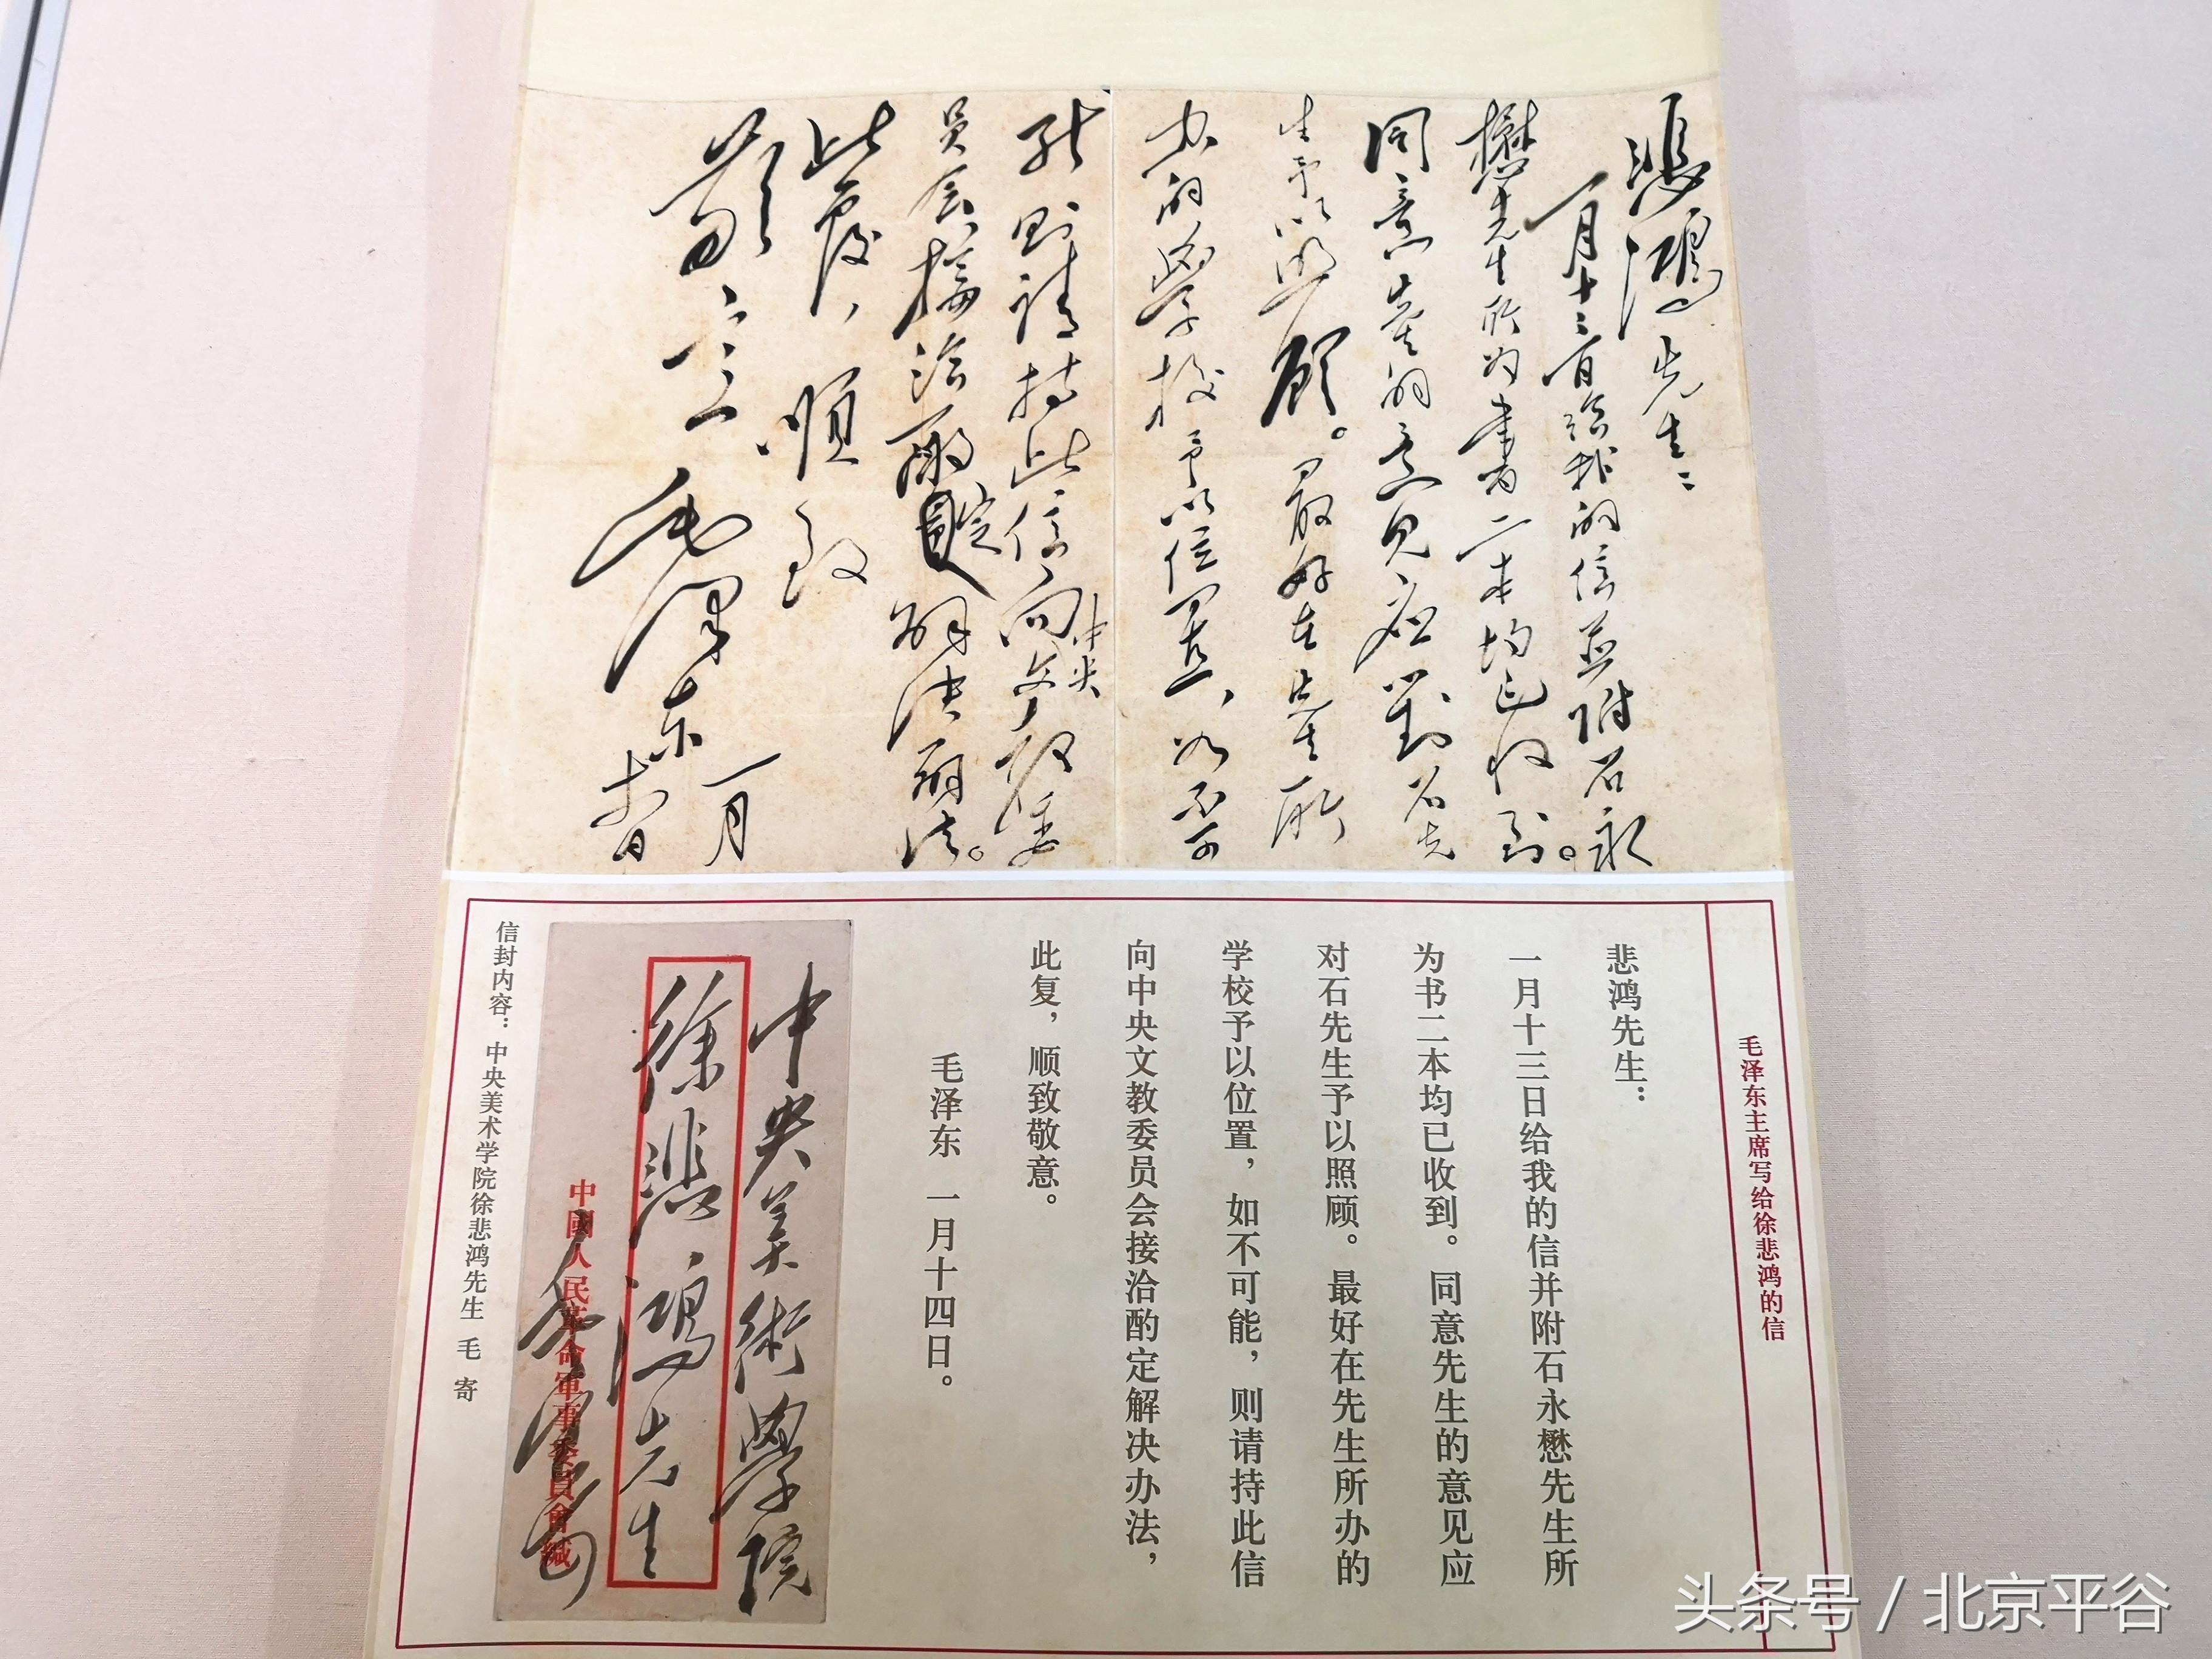 悲鴻先生：
一月十三日給我的信並附石永
懋先生所为書二本均已收到。
同意先生的意見应對石先
生予以照顧。最好在先生所
办的學校予以位置，如不可
能，則請持此信向中央文教委
員会接洽酌定解决办法。
此复，順致
敬意
毛澤东
一月
十四日
毛泽东主席写给徐悲鸿的信
悲鸿先生：
一月十三日给我的信并附石永懋先生所
为书二本均已收到。同意先生的意见应
对石先生予以照顾。最好在先生所办的
学校予以位置，如不可能，则请持此信
向中央文教委员会接洽酌定解决办法，
此复，顺致敬意。
毛泽东 一月十四日。
中央美術學院
徐悲鴻先生
中國人民革命軍事委員會緘
信封内容：中央美术学院徐悲鸿先生 毛 寄
头条号 / 北京平谷